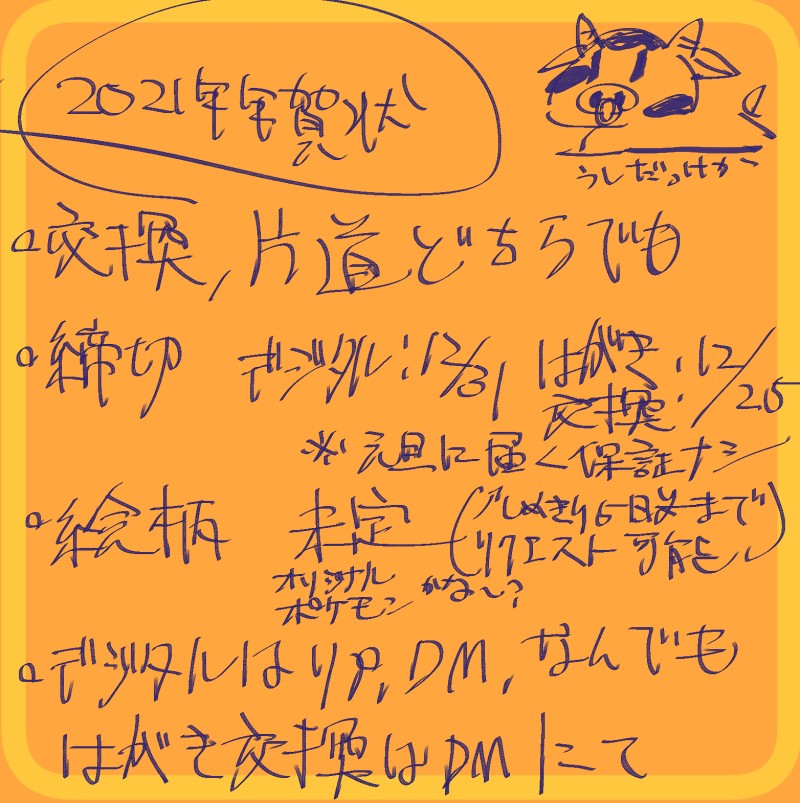 2021年年賀状
うしだっけか
交換, 片道どちらでも
締切 デジタル:12/31 はがき交換:12/25
※元旦に届く保証ナシ
絵柄 未定 (リクエスト可能)
オリジナル
ポケモン かな〜?
デジタルはリプ, DM, なんでも
はがき交換はDMにて